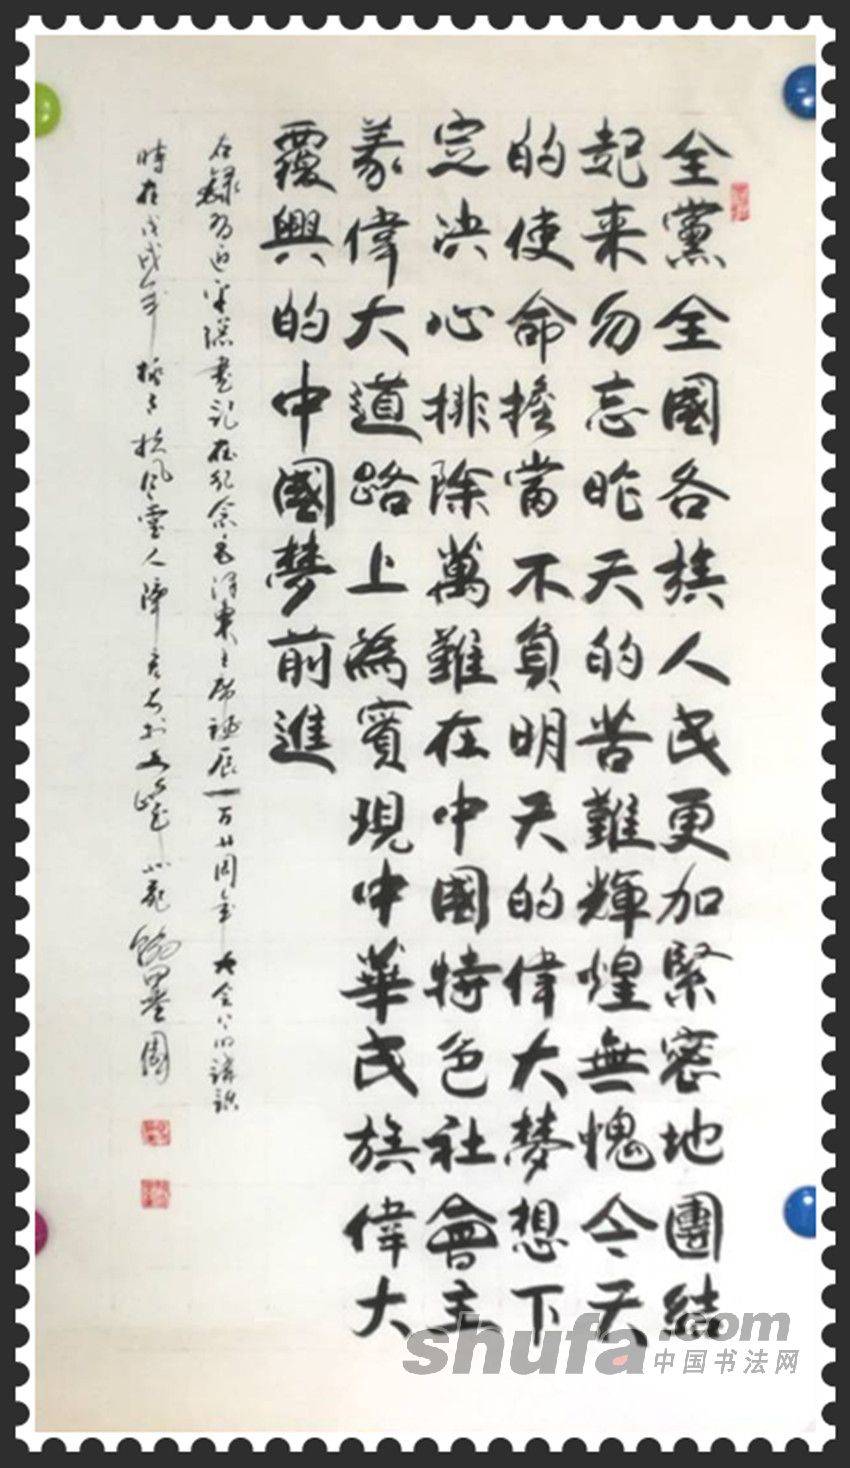 全黨全國各族人民更加緊密地團結
起来勿忘昨天的苦難輝煌無愧今天
的使命擔當不負明天的偉大梦想下
定决心排除萬難在中國特色社會主
義偉大道路上為實現中華民族偉大
覆興的中國梦前進
右録習近平總書記在紀念毛澤東主席誕辰一百廿周年大会上的講話
時在戊戌年 扶風 人 翰墨園
shufa.com
中国书法网